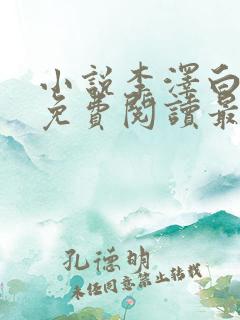 小說李澤白
免費閱讀最
孔德明
未经同意禁止转载